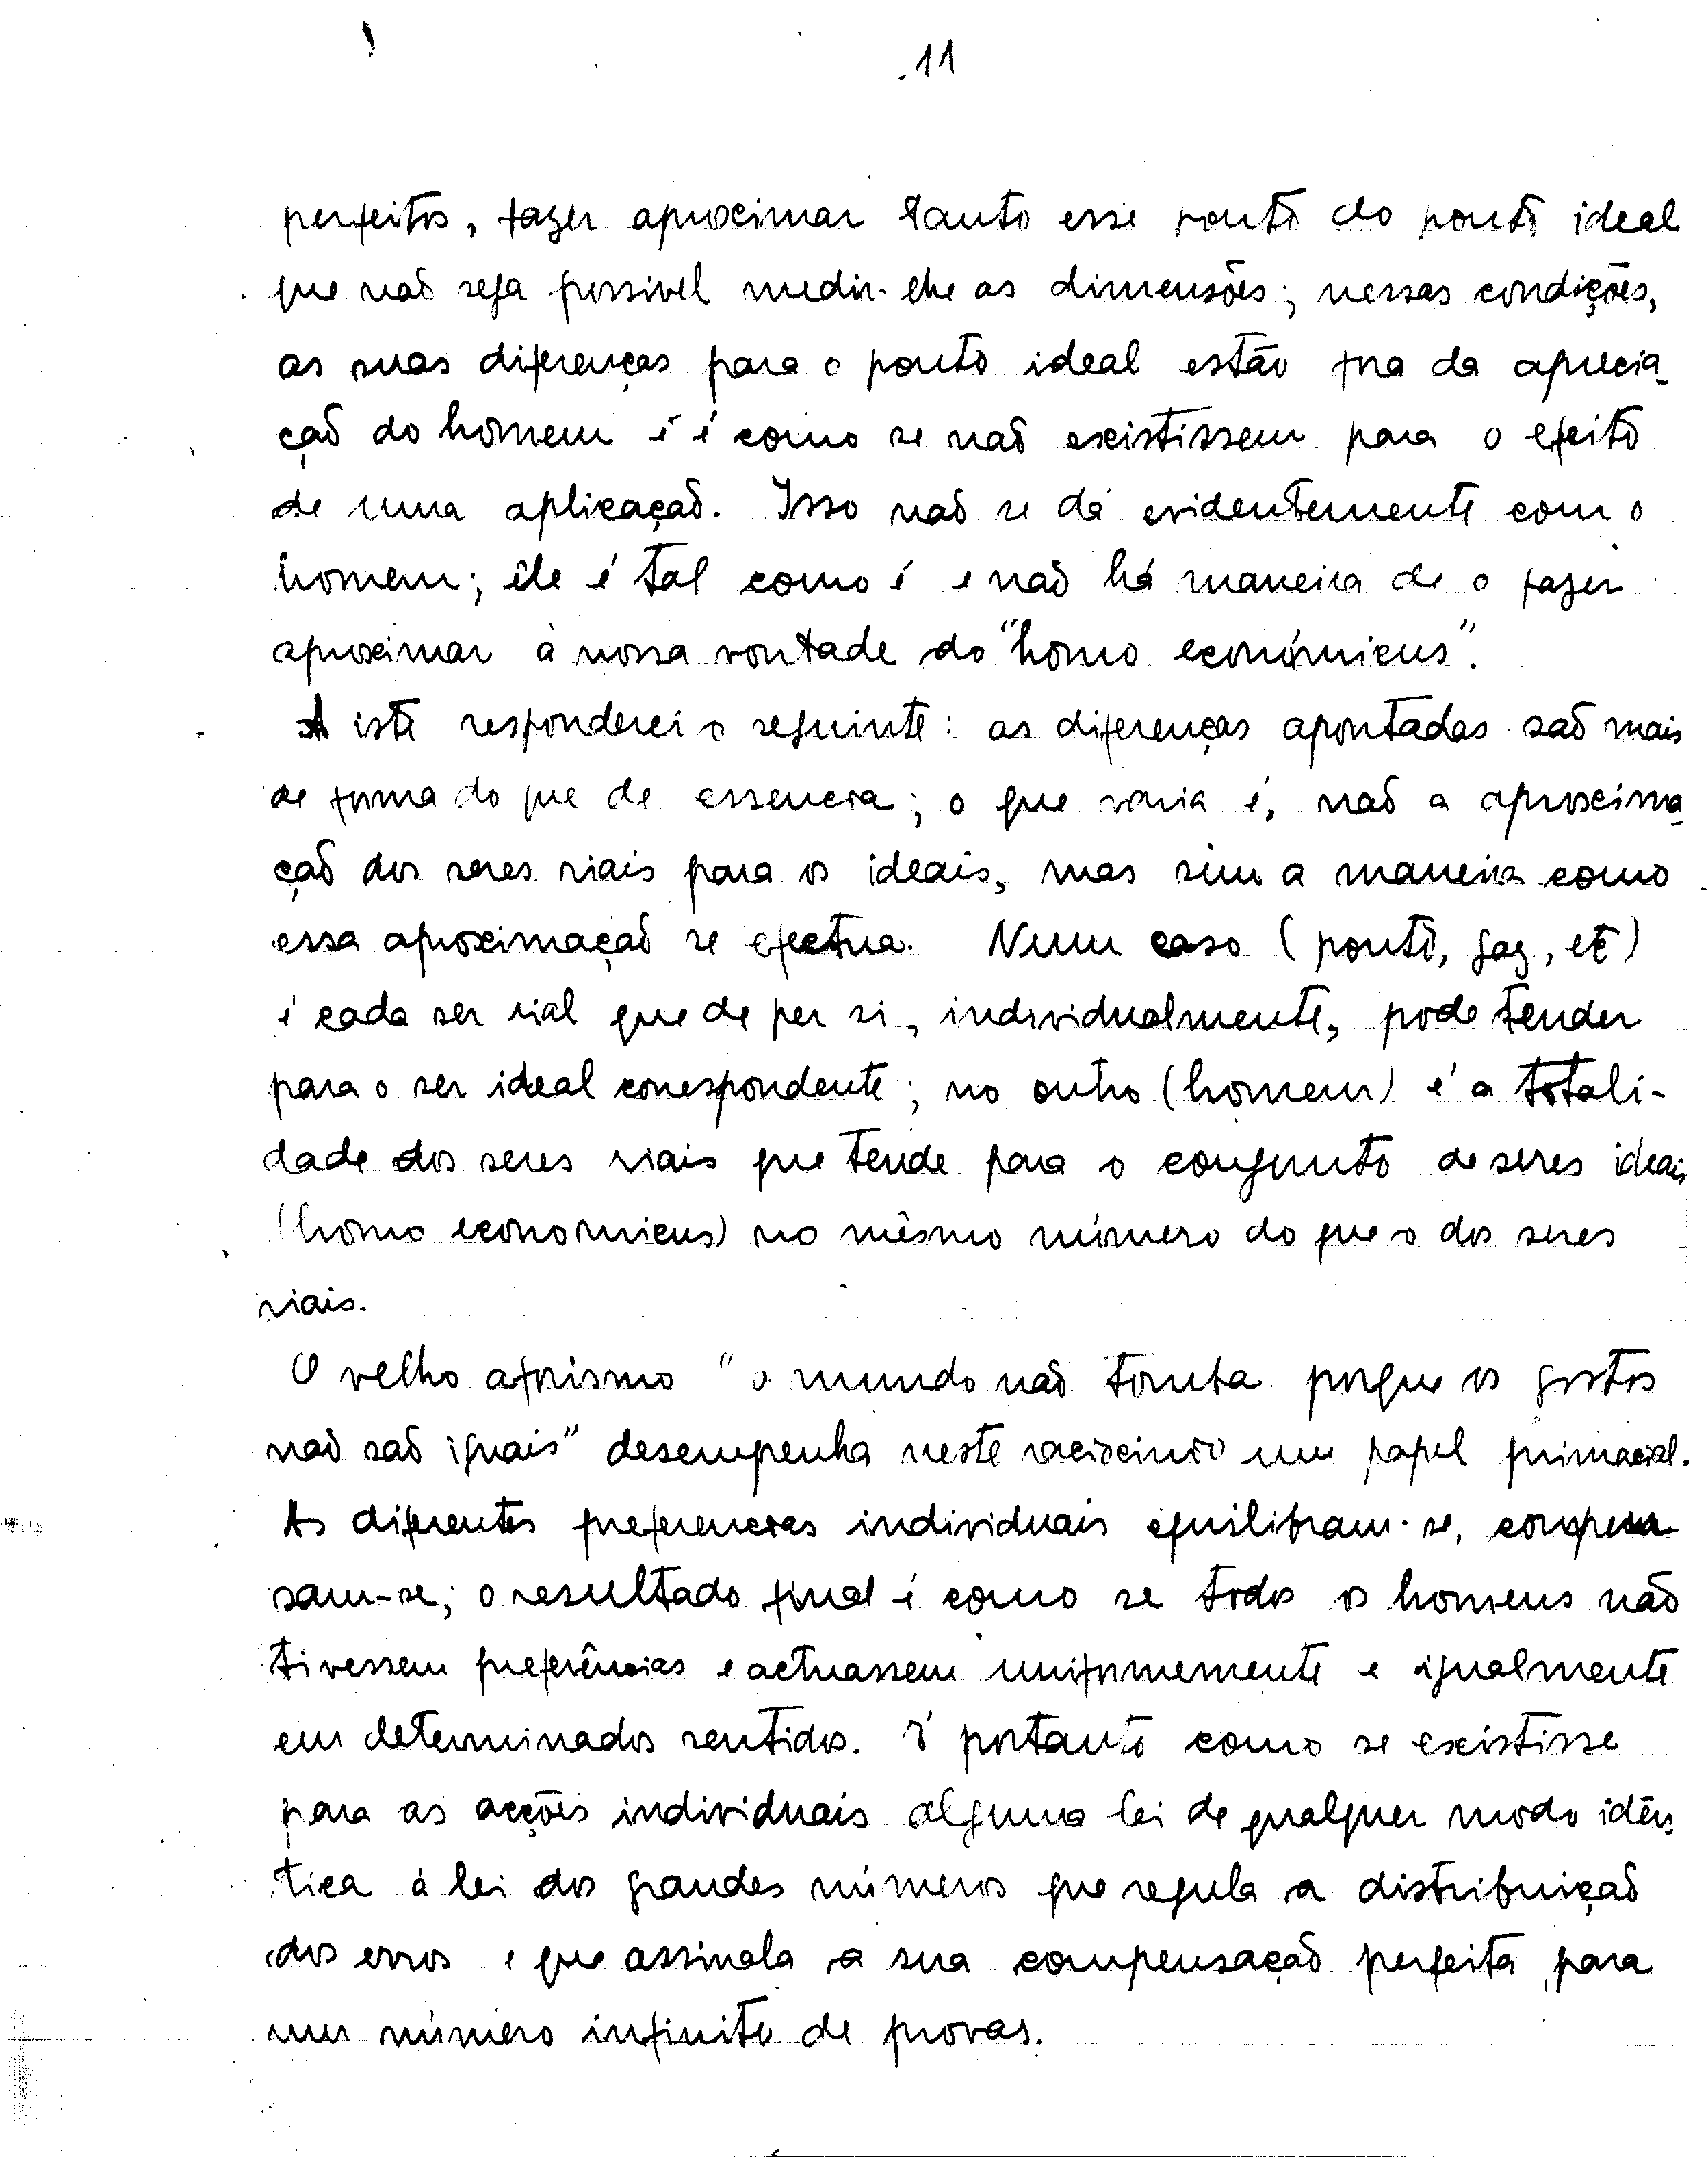 11
perfeitos, fazer aproximar tanto esse ponto do ponto ideal
que naõ seja possivel medir-lhe as dimensões; nessas condições,
as suas diferenças para o ponto ideal estão fora da aprecia-
çaõ do homem e é como se naõ existissem para o efeito
de uma aplicaçaõ. Isso naõ se dá evidentemente com o
homem; êle é tal como é e naõ há maneira de o fazer
aproximar à nossa vontade do "homo económicus".
A isto responderei o seguinte: as diferenças apontadas saõ mais
de forma do que de essencia; o que varia é, naõ a aproxima-
çaõ dos seres riais para os ideais, mas sim a maneira como
essa aproximaçaõ se efectua. Num caso (ponto, gaz, etc)
é cada ser rial que de per si, individualmente, pode tender
para o ser ideal correspondente; no outro (homem) é a totali-
dade dos seres riais que tende para o conjunto de seres ideais
(homo economicus) no mêsmo número do que o dos seres
riais.
O velho aforismo "o mundo naõ tomba porque os gostos
naõ saõ iguais" desempenha neste raciocinio um papel primacial.
As diferentes preferencias individuais equilibram-se, compen
sam-se; o resultado final é como se todos os homens não
tivessem preferências e actuassem uniformemente e igualmente
em determinados sentidos. É portanto como se existisse
para as acções individuais alguma lei de qualquer modo idên-
tica à lei dos grandes números que regula a distribuiçaõ
dos erros e que assinala a sua compensaçaõ perfeita para
um número infinito de provas.